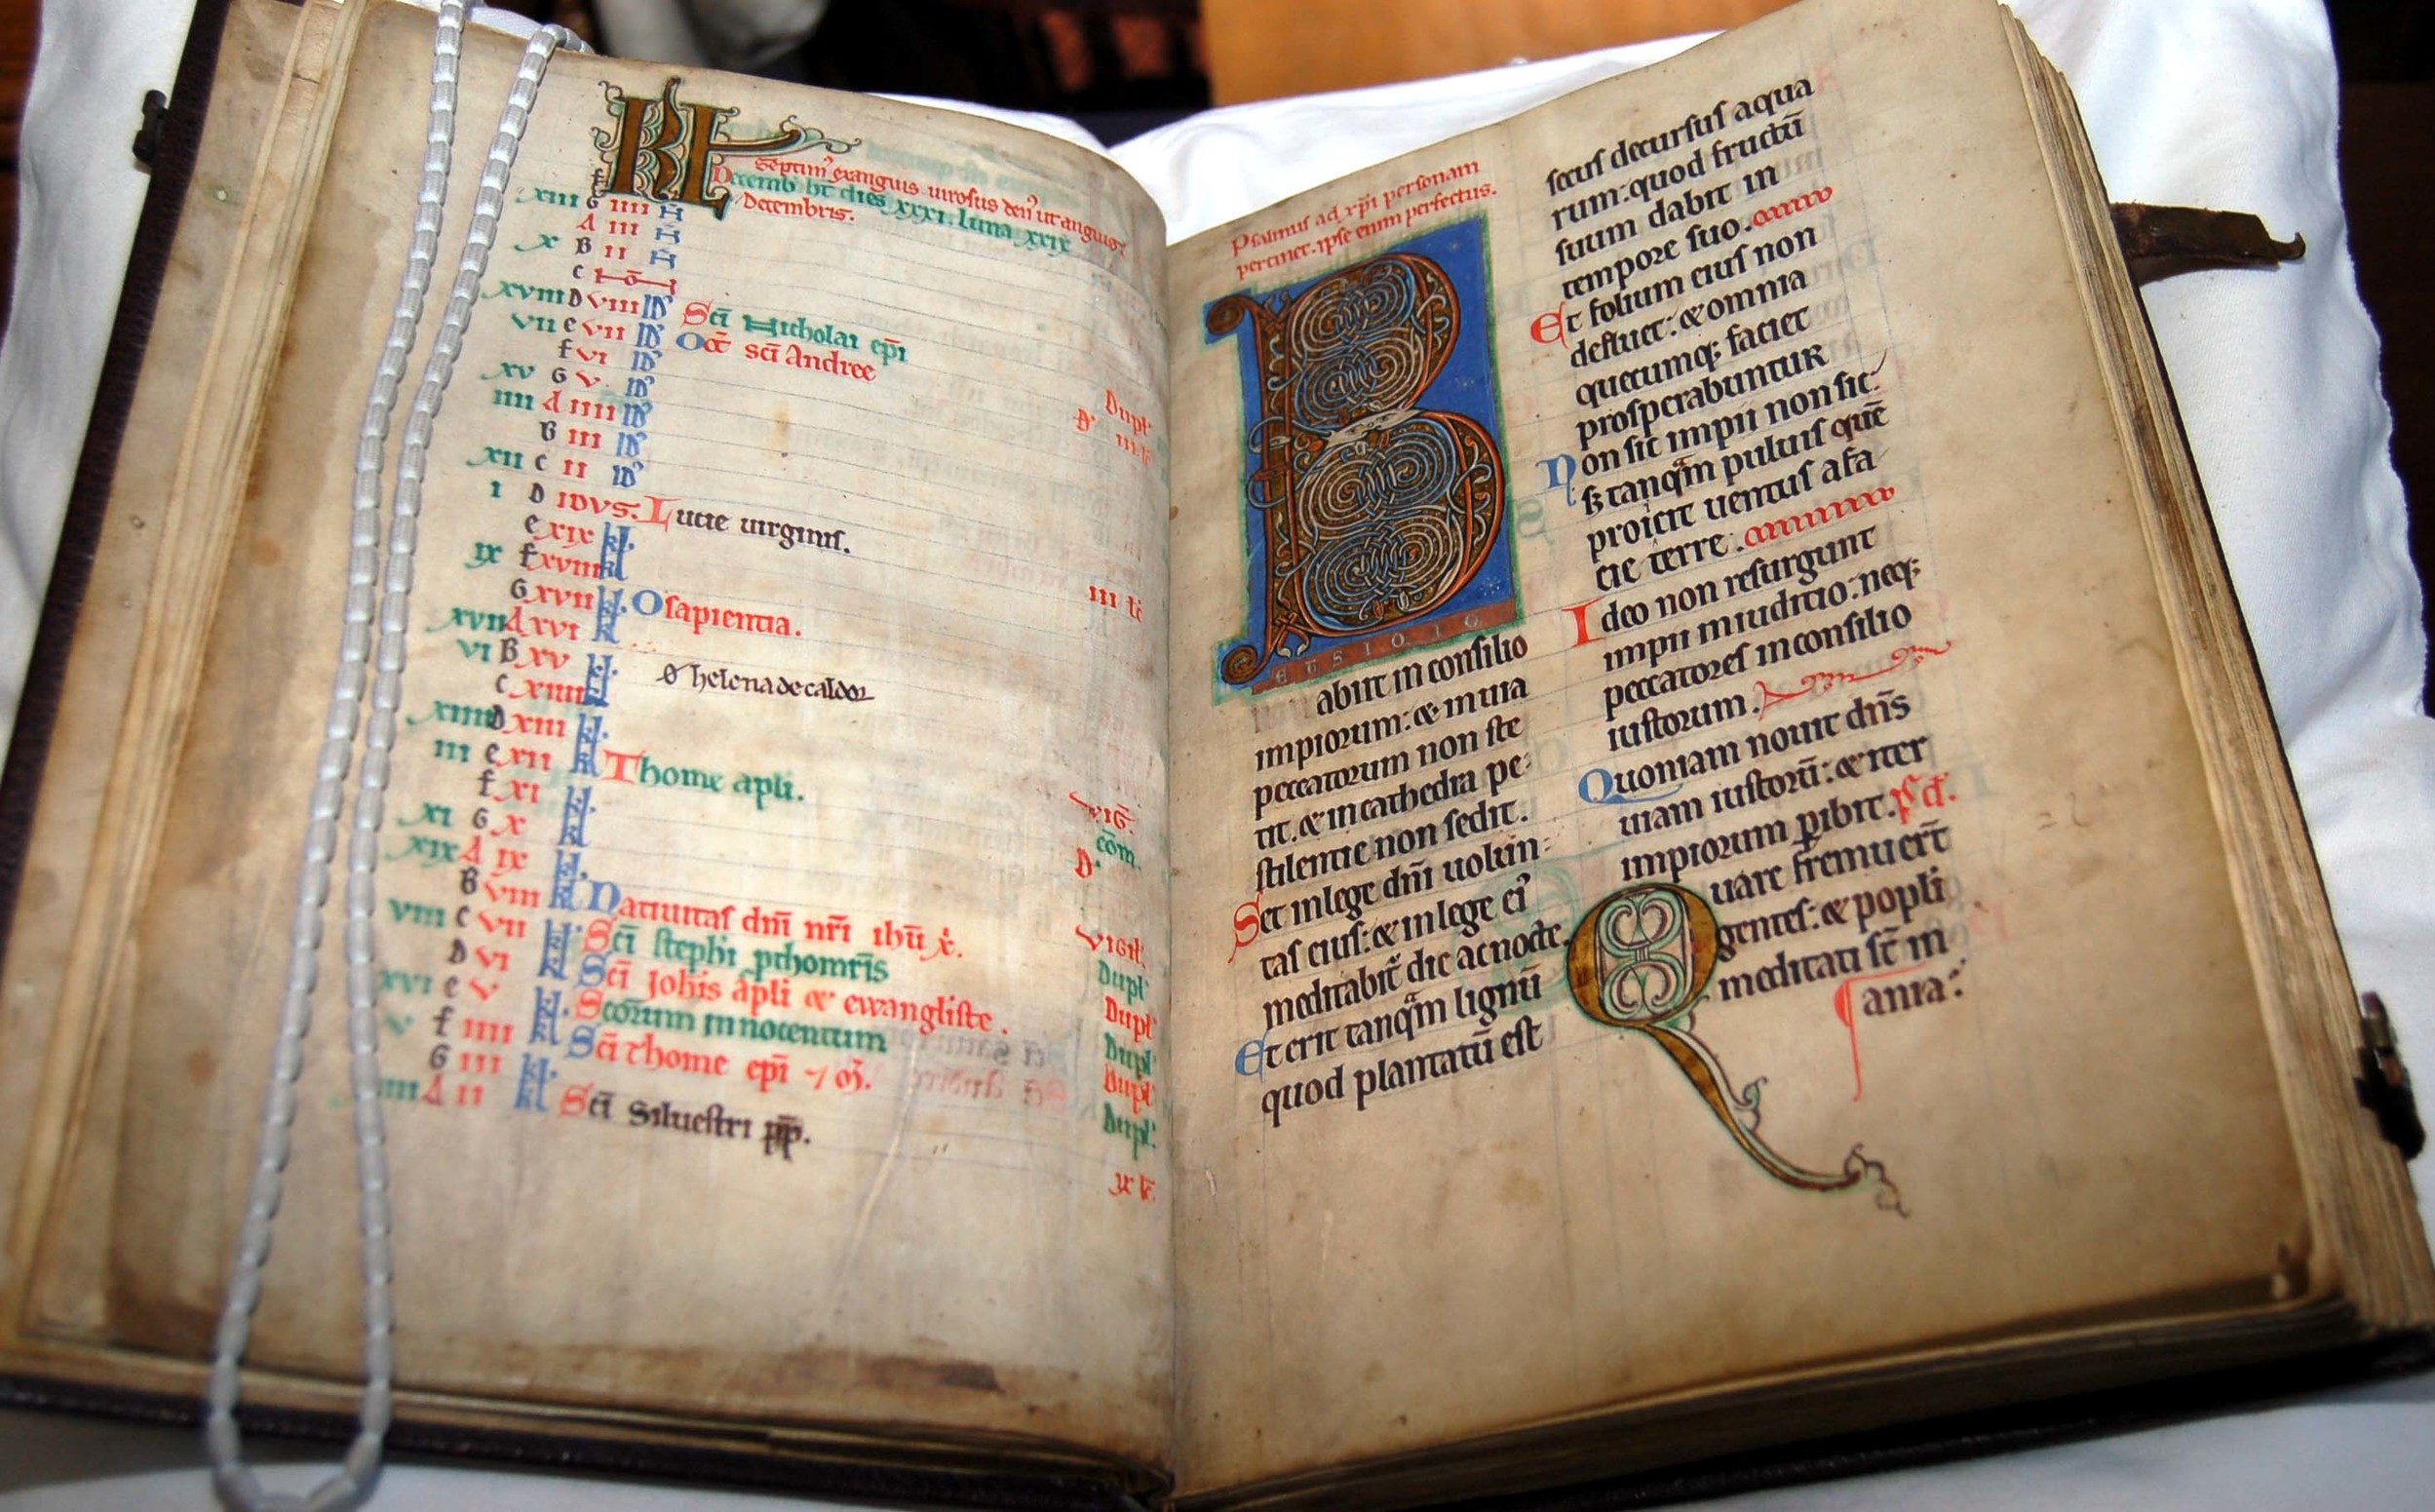 KL
Septim' exanguis uirosus den' ut anguis.
Decemb' ht dies xxxi. luna xxix
Decembris.
f
xiii G iiii N
A iii N
x B ii N
c NO
xviii D viii ID Sci Nicholai epi
vii e vii ID Oct sci Andree
f vi ID
xv G v ID
iiii A iiii ID
B iii ID
xii c ii ID
i D IDVS. Lucie uirginis.
e xix kl.
ix f xviii kl
G xvii kl. O sapientia.
xvii A xvi kl
vi B xv kl. helena de caldor
c xiiii kl
xiiii D xiii kl.
iii e xii kl Thome apli.
f xi kl.
xi G x kl
xix A ix kl.
B viii kl Natiuitas dni nri ihu x.
viii c vii kl. Sci stephi pthomris
D vi kl Sci Johis apli & ewangliste.
xvi e v kl. Scorum innocentum
v f iiii kl Sci thome epi 7 m.
G iii kl.
iiii A ii kl Sci Siluestri pp.
Dupl'
D' iii. lc
iii lc
vig.
com.
D'
vigil'.
Dupl'
Dupl'
Dupl'
Dupl'
Dupl'.
ix l'.
Psalmus ad xpi personam
pertinet. ipse enim perfectus.
B
E T S I O I O
abiit in consilio
impiorum: & in uia
peccatorum non ste
tit. & in cathedra pe-
stilentie non sedit.
Set in lege dni uolun-
tas eius: & in lege ei'
meditabit' die ac nocte.
Et erit tanqam lignū
quod plantatū est
secus decursus aqua
rum: quod fructū
suum dabit in
tempore suo.
Et folium eius non
defluet: & omnia
quecumq; faciet
prosperabuntur
Non sic impii non sic:
s; tanqam puluis quē
proicit uentus a fa
cie terre.
Ideo non resurgunt
impii in iuditio: neq;
peccatores in consilio
iustorum.
Quoniam nouit dns
uiam iustorū: & iter
impiorum pibit. ps d'.
Quare fremuert
gentes: & popli
meditati st in
ania: